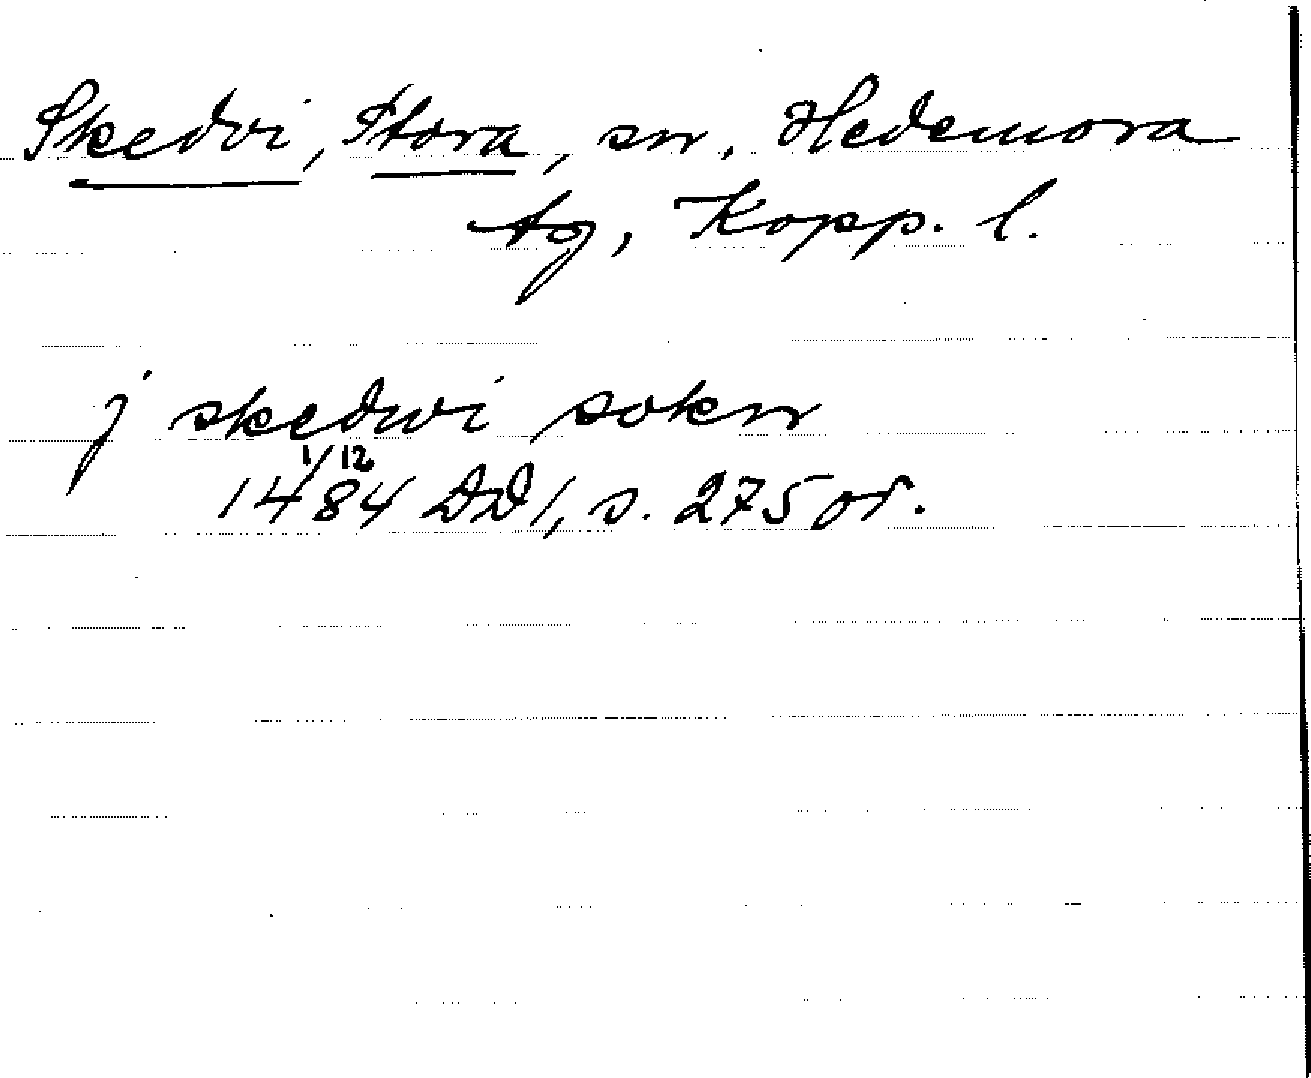 Skedvi, Stora, sn, Hedemora
tg, Kopp. l.
j skedwi sokn
1/12
1484 DD 1, s. 275 or.